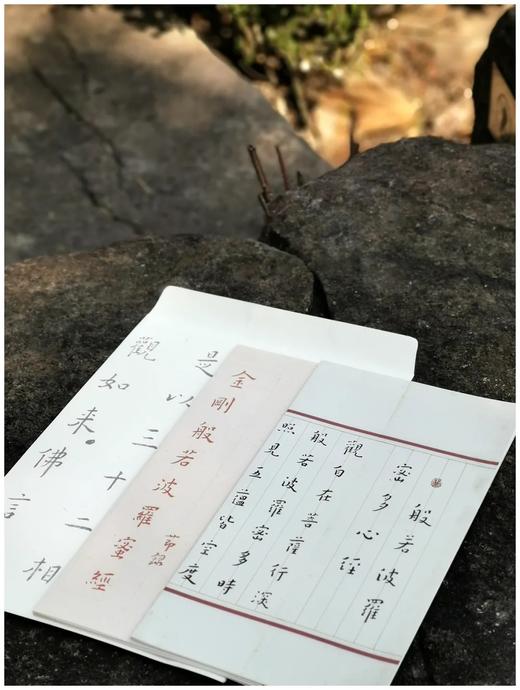 般若波羅
密多心經
觀自在菩薩行深
般若波羅密多時
照見五蘊皆空度
金剛般若波羅蜜經
節錄
是以三十二相
觀如來佛言